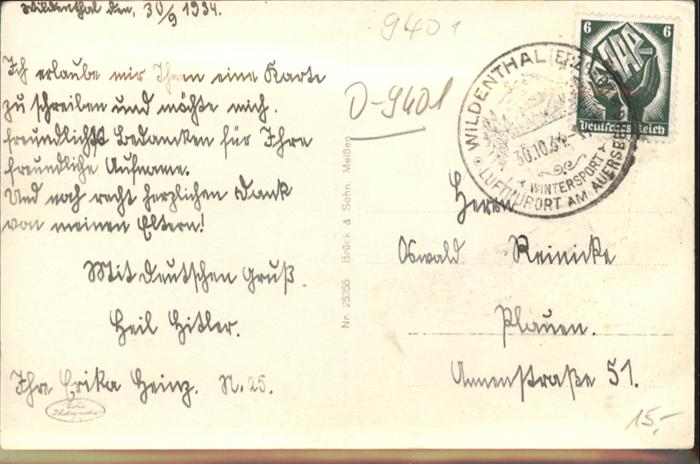 Wildenthal den, 30/9 1934.
Ich erlaube mir Ihnen eine Karte
zu schreiben und möchte mich
freundlichst bedanken für Ihre
freundliche Aufname.
Und noch recht herzlichen Dank
von meinen Eltern!
Mit Deutschen Gruß.
Heil Hitler.
Ihre Erika Heinz. N. 25.
Nr. 25255 Brück & Sohn, Meißen
9401
D-9401
6 6
SAAR
Deutsches Reich
WILDENTHAL (ERZGEB.)
30.10.34
WINTERSPORT
LUFTKURORT AM AUERSBERG
Herrn
Oswald Reinicke
Plauen.
Annenstraße 51.
15,-